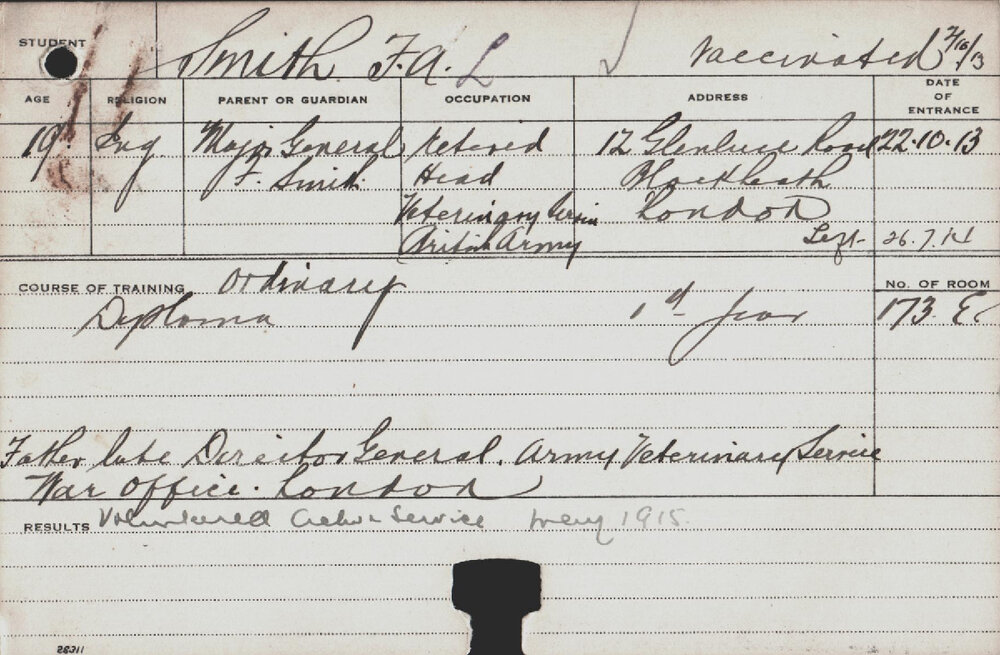 STUDENT Smith F.A. L Vaccinated 2/10/13
AGE RELIGION PARENT OR GUARDIAN OCCUPATION ADDRESS DATE OF ENTRANCE
19 Eng. Major General Retired 12 Glenluce Road 22.10.13
F. Smith Head Blackheath
Veterinary Service London
British Army Left 26.7.14
COURSE OF TRAINING Ordinary No. OF ROOM
Diploma 1st Year 173 E
Father late Director General. Army Veterinary Service
War Office. London
RESULTS Volunteered Active Service May 1915.
28311